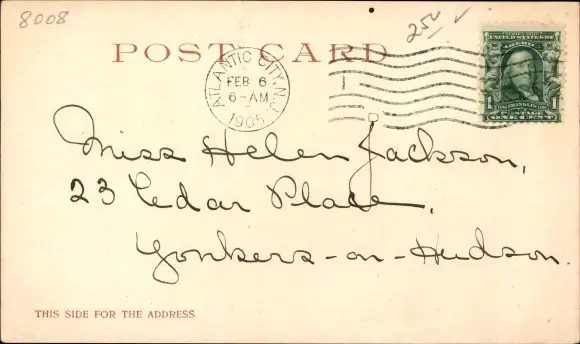 8008
25¢ ✓
POST CARD
ATLANTIC CITY, N.J.
FEB 6
6-AM
1905
1
POSTAGE
ONE CENT
Miss Helen Jackson,
23 Cedar Place,
Yonkers-on-Hudson.
THIS SIDE FOR THE ADDRESS